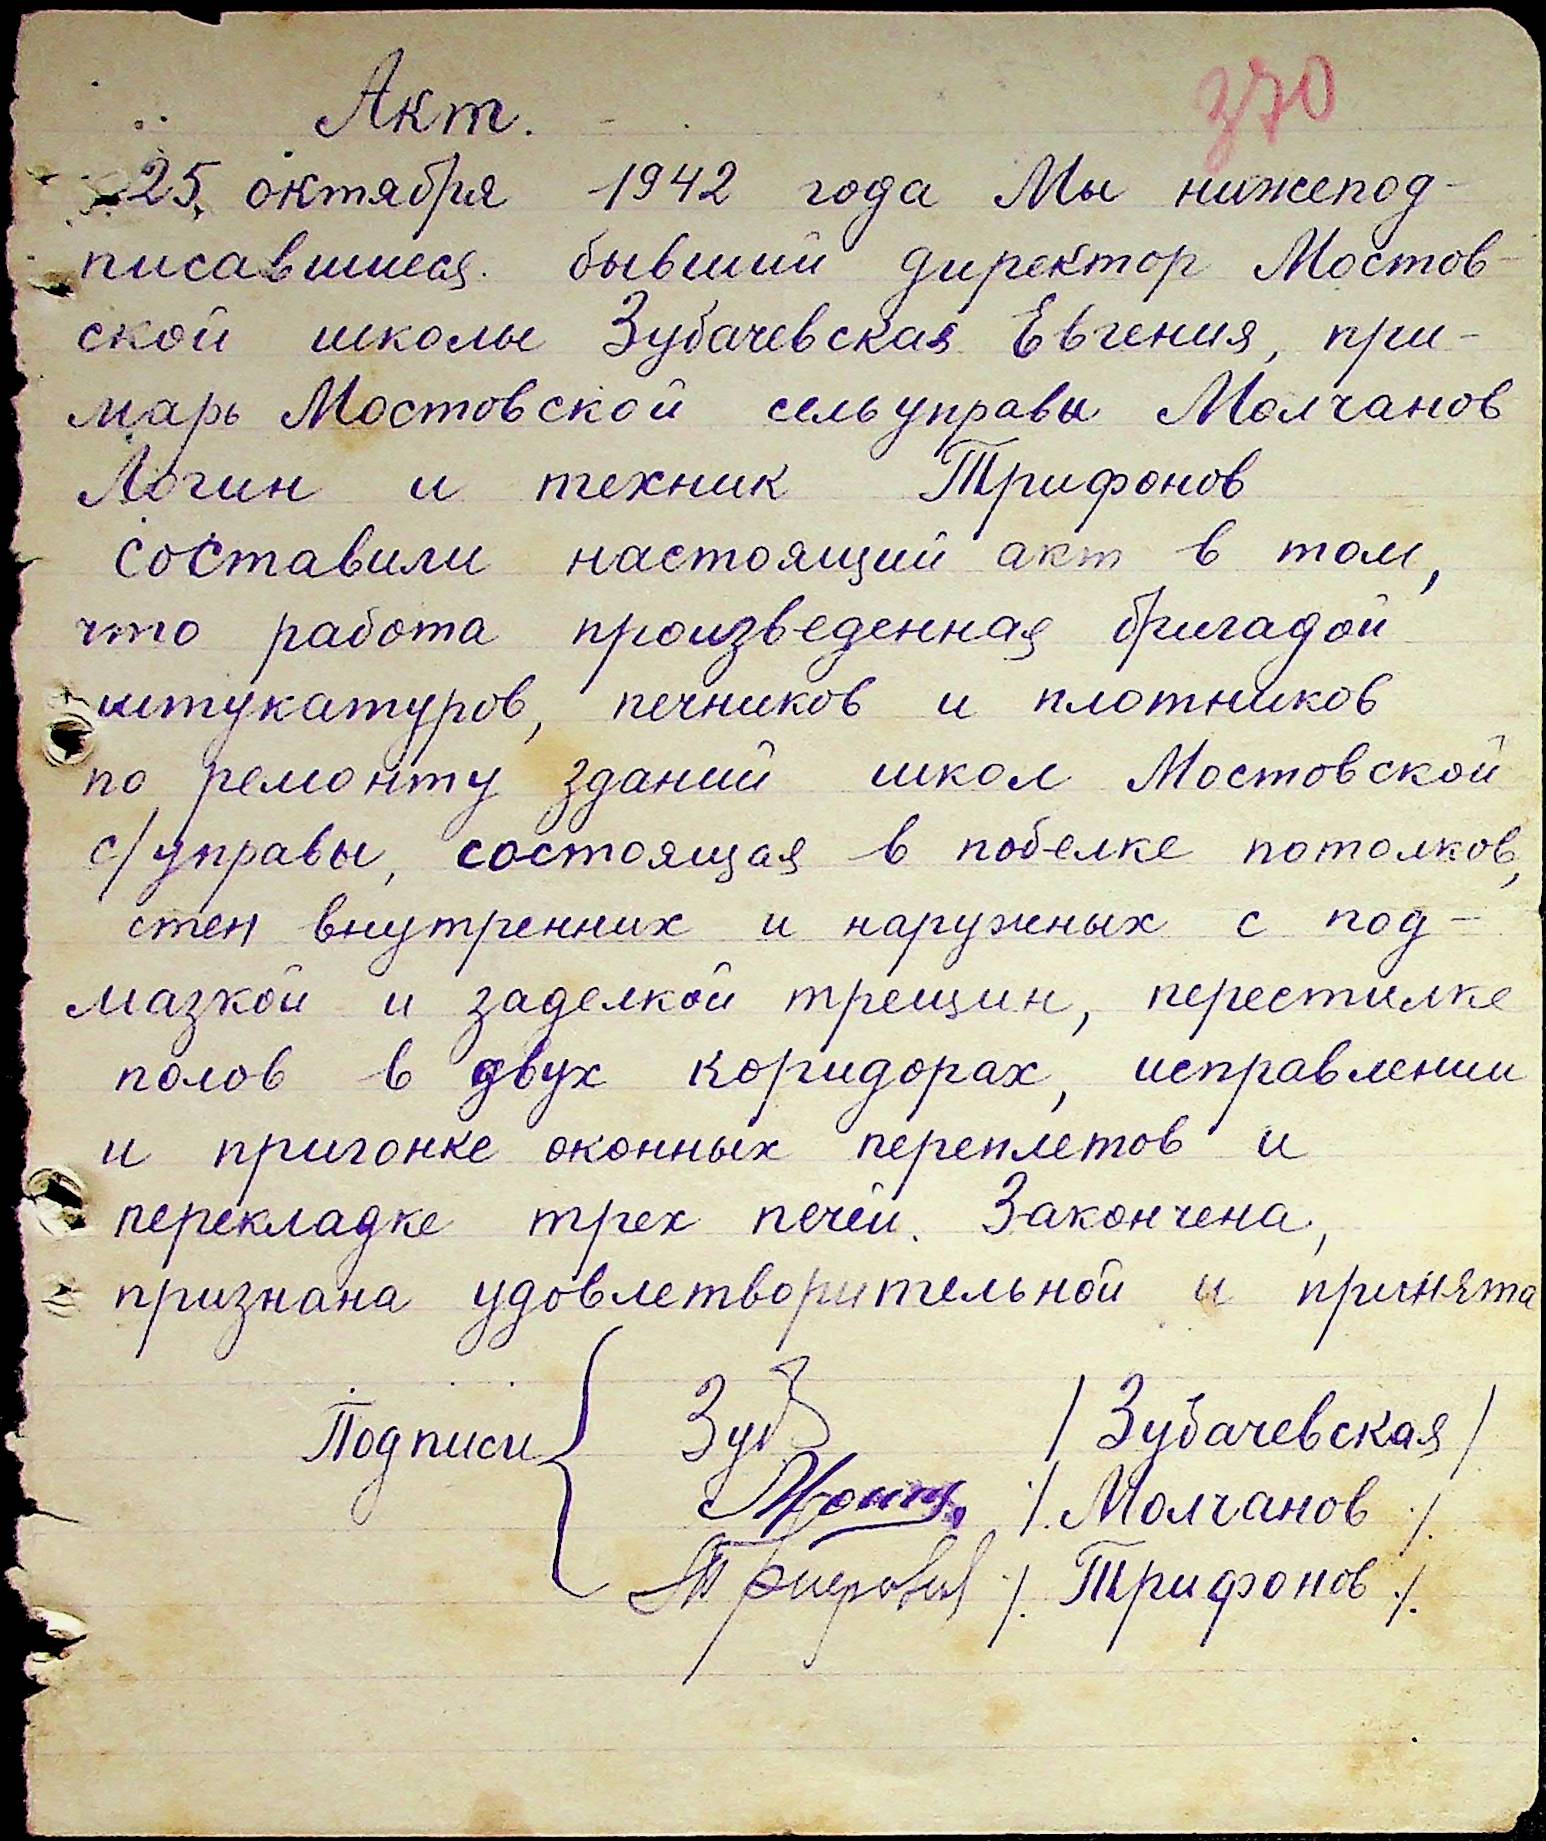 370
Акт.
25 октября 1942 года Мы нижепод-
писавшиеся бывший директор Мостов-
ской школы Зубачевская Евгения, при-
марь Мостовской сельуправы Молчанов
Логин и техник Трифонов
составили настоящий акт в том,
что работа произведенная бригадой
штукатуров, печников и плотников
по ремонту зданий школ Мостовской
с/управы, состоящая в побелке потолков,
стен внутренних и наружных с под-
мазкой и заделкой трещин, перестилке
полов в двух коридорах, исправлении
и пригонке оконных переплетов и
перекладке трех печей. Закончена,
признана удовлетворительной и принята
Подписи { Зуб /Зубачевская/
/.Молчанов./
/.Трифонов./